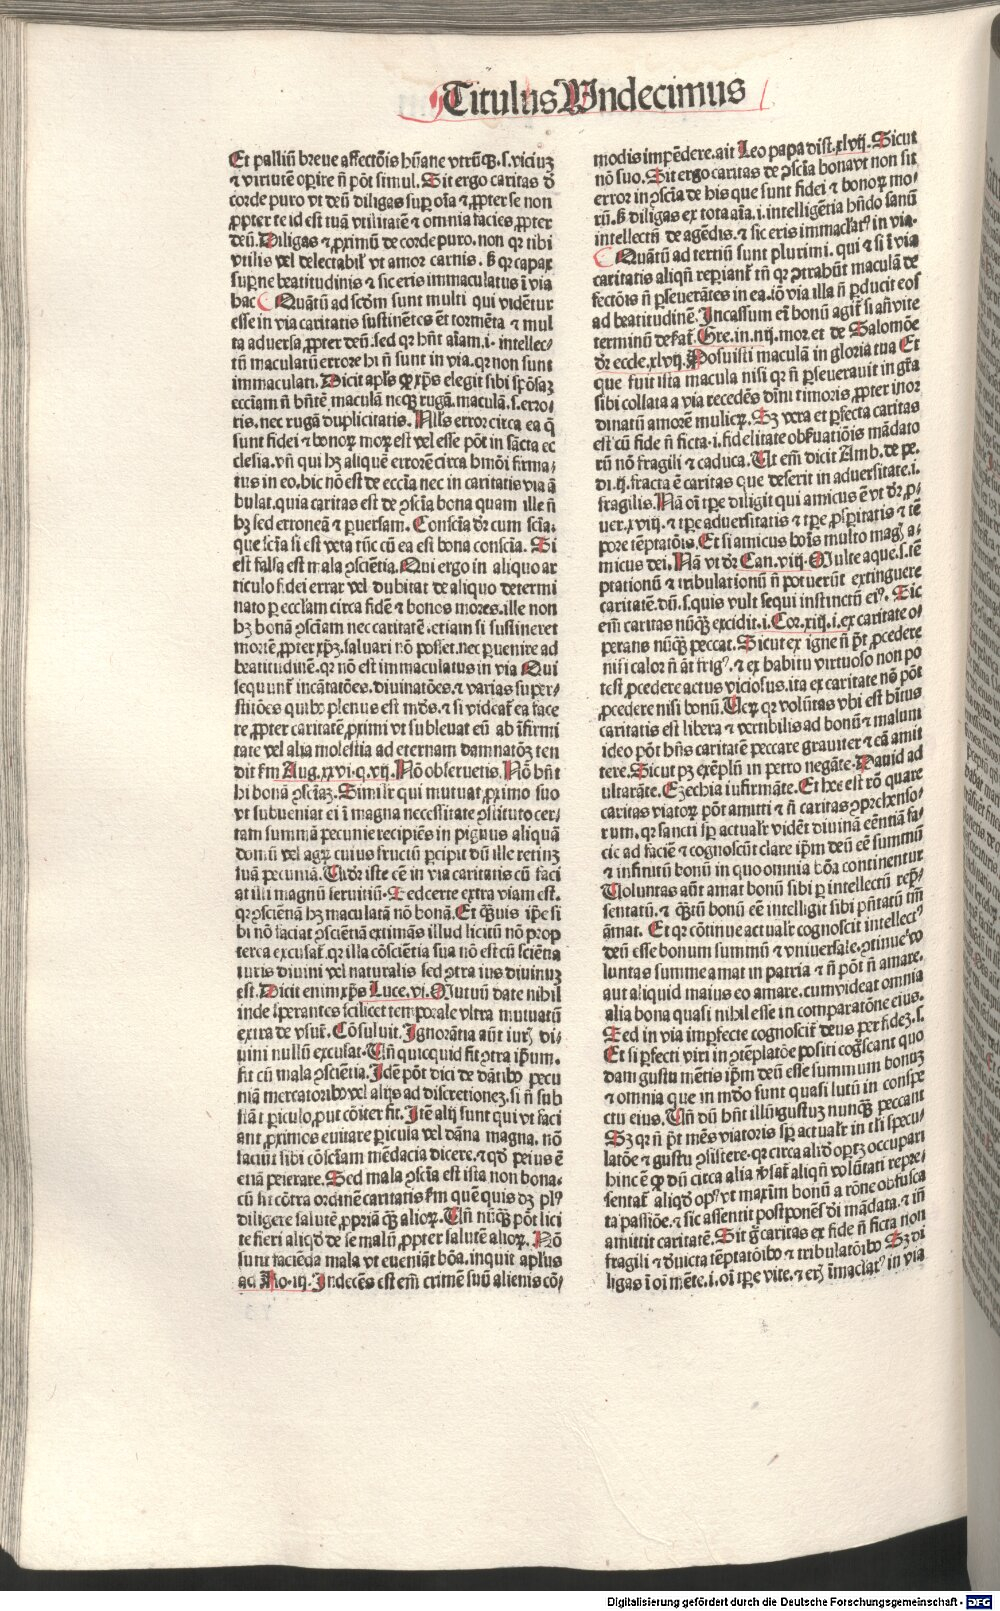 Titulus Undecimus
Et palliū breve affectōis hūane vtrūqꝫ.s.viciuꝫ
⁊ virtutē oꝑire ñ pōt simul. Sit ergo caritas ď
corde puro vt deū diligas suꝑ oīa ⁊ ꝓpter se non
ꝓpter te id est tuā vtilitatē ⁊ omnia facies ꝓpter
deū. Diligas ⁊ ꝓximū de corde puro. non qr tibi
vtilis vel delectabił vt amor carnis. ß qr capax
suꝑne beatitudinis ⁊ sic eris immaculatus ī via
hac Quātū ad scđm sunt multi qui vidētur
esse in via caritatis sustinētes ēt tormēta ⁊ mul
ta adversa ꝓpter deū. sed qr hñt aīam.i. intellec-
tū maculatū errore hi ñ sunt in via. qr non sunt
immaculati. Dicit apłs ꝙ xp̄s elegit sibi spōsaꝫ
eccīam ñ hñtē maculā necqꝫ rugā. maculā.s. erro-
ris. nec rugā duplicitatis. Null's error circa ea q̄
sunt fidei ⁊ bonoꝝ moꝝ est vel esse pōt in sācta ec
clesia. vñ qui hꝫ aliquē errorē circa hmōi firma-
tus in eo. hic nō est de eccīa nec in caritatis via ā
bulat. quia caritas est de ꝯscīa bona quam ille ñ
hꝫ sed erroneā ⁊ ꝑversam. Conscīa dr cum scīa.
que scīa si est vera tūc cū ea est bona conscīa. Si
est falsa est mala ꝯsciētia. Qui ergo in aliquo ar
ticulo fidei errat vel dubitat de aliquo determi
nato ꝑ eccłam circa fidē ⁊ bonos mores. ille non
hꝫ bonā ꝯsciam nec caritatē. etiam si sustineret
mortē ꝓpter xp̄ꝫ. saluari nō posset. nec ꝑuenire ad
beatitudinē. qr nō est immaculatus in via Qui
sequunt̄ incātatōes. divinatōes. ⁊ varias super-
stitiōes quibꝰ plenus est mūds. ⁊ si videat̄ ea face
re ꝓpter caritatē ꝓximi vt sublevat eū ab īfirmi
tate vel alia molestia ad eternam damnatōꝫ ten
dit fm Aug. xxvi. q. vij. Nō observetis. Nō hñt
hi bonā ꝯsciaꝫ. Similr qui mutuat ꝓximo suo
vt subveniat ei ī magna necessitate ꝯstituto cer-
tam summā pecunie recipiēs in pignus aliquā
domū vel agꝝ cuius fructū ꝑcipit dū ille retinꝫ
suā pecuniā. Tudr iste eē in via caritatis cū faci
at illi magnū servitiū. Sed certe extra viam est.
qr ꝯsciētiā hꝫ maculatā nō bonā. Et qꝫuis ip̄e si
bi nō faciat ꝯsciētiā extimās illud licitū nō prop
terea excusat̄. qr illa cōsciētia sua nō est cū scientia
iuris divini vel naturalis sed ꝯtra ius divinuꝫ
est. Dicit enim xp̄s Luce. vi. Mutuū date nihil
inde sperantes scilicet temporale vltra mutuatū
extra de vsur̄. Cōsuluit. Ignorātia aūt iurꝭ di-
vini nullū excusat. Vñ quicquid fit ꝯtra ip̄um.
fit cū mala ꝯsciētia. Idē pōt dici de dātibꝰ pecu
niā mercatoribꝰ vel alijs ad discretionez. si ñ sub
siāt ꝑiculo ꝓut cōiter fit. Itē alij sunt qui vt faci
ant ꝓximos evitare ꝑicula vel dāna magna. nō
faciūt sibi cōsciam mēdacia dicere. ⁊ qđ peius ē
etiā peierare. Sed mala ꝯscīa est ista non bona.
cū sit cōtra ordinē caritatis fm quē quis dꝫ plꝰ
diligere salutē ꝓpriā qꝫ alioꝝ. Vñ nūqꝫ pōt lici
te fieri aliqđ de se malū ꝓpter salutē alioꝝ. Nō
sunt faciēda mala vt eveniāt bōa. inquit apłus
ad Ro. iij. Indecēs est em̄ crimē suū alienis cō-
modis impēdere. ait Leo papa dist. xlvij. Sicut
nō suo. Sit ergo caritas de ꝯscīa bona vt non sit
error in ꝯscīa de his que sunt fidei ⁊ bonoꝝ mo-
rū. ß diligas ex tota aīa.i. intelligētia hñdo sanū
intellectū de agēdis. ⁊ sic eris immaclatꝰ in via.
Quātū ad tertiū sunt plurimi. qui ⁊ si ī via
caritatis aliqñ reꝑiant̄ tñ qr ꝯtrahūt maculā de
fectōis ñ ꝑseverātes in ea. iō via illa ñ ꝑducit eos
ad beatitudinē. Incassum em̄ bonū agit̄ si añ vite
terminū deserat̄. Gre. in. iij. mor. et de Salomōe
dr eccle. xlvij. Posuisti maculā in gloria tua Et
que fuit ista macula nisi qr ñ ꝑseveravit in grā
sibi collata a via recedēs dīni timoris ꝓpter inor
dinatū amorē mulieꝝ. Sꝫ vera et ꝑfecta caritas
est cū fide ñ ficta.i. fidelitate obseruatiōis mādato
rū nō fragili ⁊ caduca. Ut em̄ dicit Amb. de pe.
di. ij. fracta ē caritas que deserit in adversitate.i.
fragilis. Nā oī tꝑe diligit qui amicus ē vt dr ꝓ-
ver. xviij. ⁊ tꝑe adversitatis ⁊ tꝑe ꝓsꝑitatis ⁊ tē
pore tēptatōis. Et si amicus hoīs multo magꝭ a-
micus dei. Nā vt dr Can. viij. Multe aque.s. tē
ptationū ⁊ tribulationū ñ potuerūt extinguere
caritatē. dū.s. quis vult sequi instinctū eiꝰ. Sic
em̄ caritas nūqꝫ excidit. i. Cor. xiij. i. ex caritate o-
perans nūqꝫ peccat. Sicut ex igne ñ p̄t ꝓcedere
nisi calor ñ āt frigꝰ. ⁊ ex habitu virtuoso non po
test ꝓcedere actus viciosus. ita ex caritate nō pōt
ꝓcedere nisi bonū. Ueꝝ qr volūtas vbi est hītus
caritatis est libera ⁊ vertibilis ad bonū ⁊ malum
ideo pōt hñs caritatē peccare graviter ⁊ eā amit
tere. Sicut pꝫ exēplū in petro negāte. David ad
ulterāte. Ezechia infirmāte. Et hec est rō quare
caritas viatoꝝ pōt amitti ⁊ ñ caritas ꝯprehenso-
rum. qr sancti sꝑ actualr vidēt divinā eēntiā fa-
cie ad faciē ⁊ cognoscūt clare ip̄m deū eē summū
⁊ infinitū bonū in quo omnia bōa continentur
Voluntas aūt amat bonū sibi ꝑ intellectū reꝑ-
sentatū. ⁊ qꝫtū bonū eē intelligit sibi p̄ntatū tm̄
āmat. Et qr cōtinue actualr cognoscit intellectꝰ
deū esse bonum summū ⁊ vniversale. ꝯtinue vo
luntas summe amat in patria ⁊ ñ pōt ñ amare.
aut aliquid maius eo amare. cum videat omnia
alia bona quasi nihil esse in comparatōne eius.
Sed in via imꝑfecte cognoscit̄ deus per fidez.s.
Et si ꝑfecti viri in ꝯtēplatōe positi cogscant quo
dam gustu mētis ip̄m deū esse summum bonuꝫ
⁊ omnia que in mūdo sunt quasi lutū in conspe
ctu eius. Vñ dū hñt illū gustuꝫ nunqꝫ peccant
Sꝫ qr ñ p̄t mēs viatoris sꝑ actualr in tali specu-
latōe ⁊ gustu ꝯsistere. qr circa aliđ oꝑtꝫ occupari
hinc ē ꝙ dū circa alia ꝟsat̄ aliqñ volūtati repre-
sentat̄ aliqđ opꝰ vt maxim bonū a rōne obfusca
ta passiōe. ⁊ sic assentit postponēs dī mādata. ⁊ iñ
amittit caritatē. Sit g̊ caritas ex fide ñ ficta non
fragili ⁊ devicta tēptatōibꝰ ⁊ tribulatōibꝰ Sꝫ di
ligas ī oī mēte.i. oī tꝑe vite. ⁊ erꝭ īmaclatꝰ in via
Digitalisierung gefördert durch die Deutsche Forschungsgemeinschaft - DFG